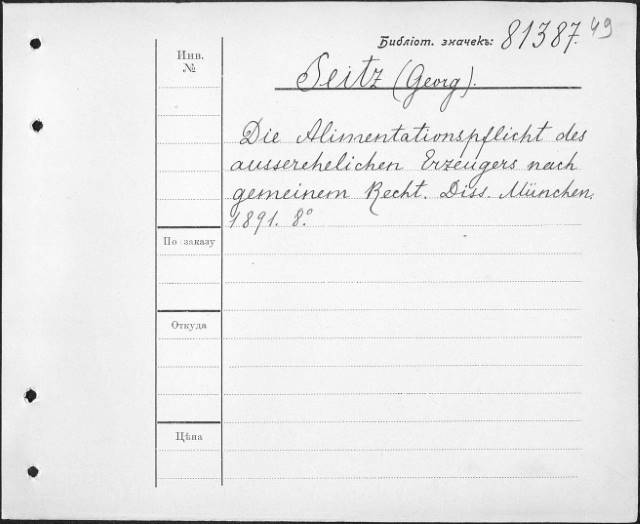 Библіот. значекъ: 81387. 49
Инв.
№
Seitz (Georg).
Die Alimentationspflicht des
ausserehelichen Erzeugers nach
gemeinem Recht. Diss. München.
1891. 8.°
По заказу
Откуда
Цѣна